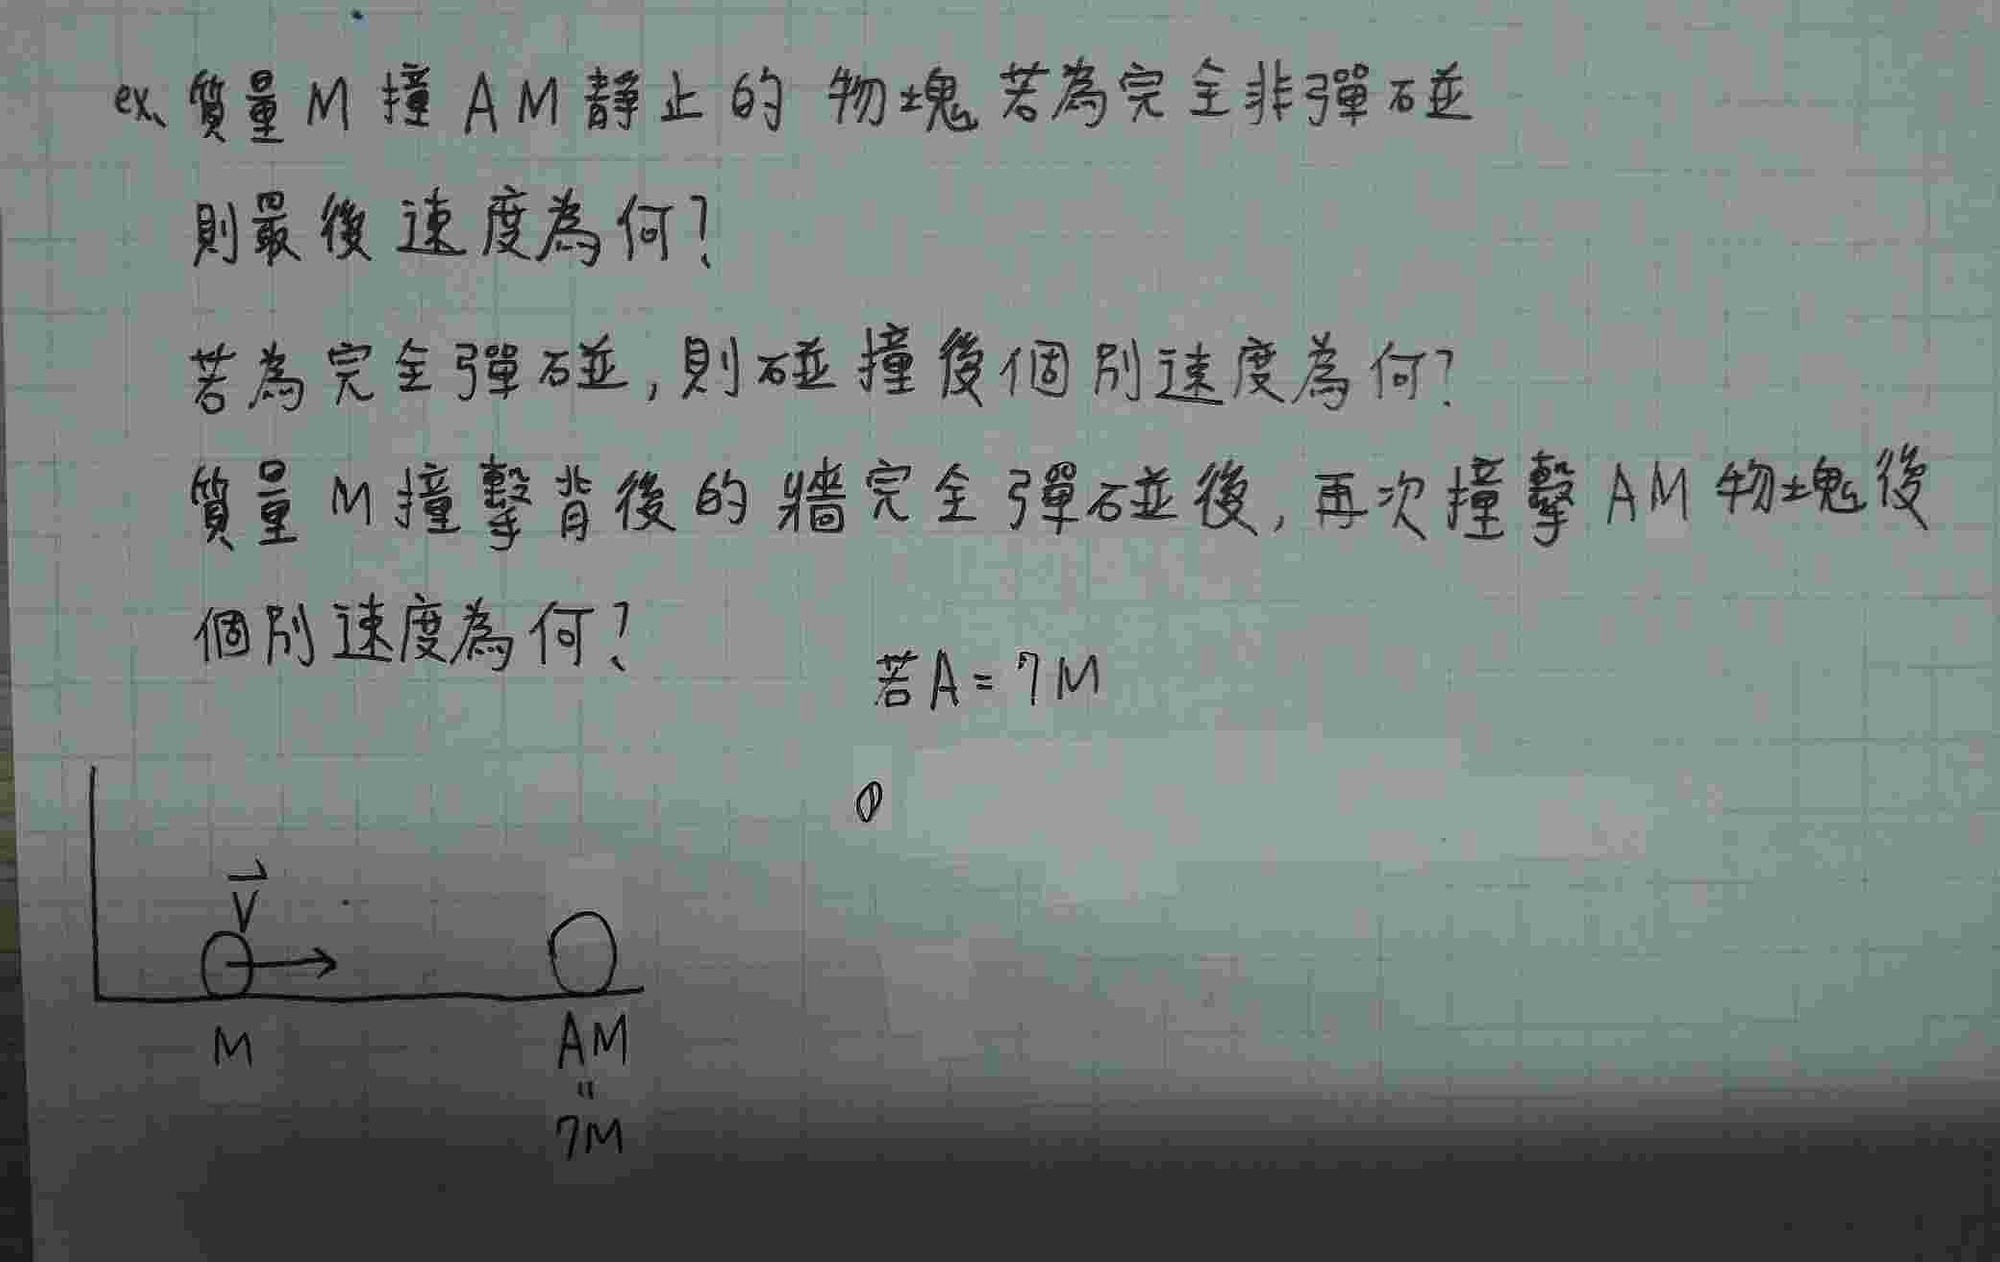 ex、質量 M 撞 AM 靜止的 物塊 若為完全非彈碰
則最後速度為何?
若為完全彈碰,則碰撞後個別速度為何?
質量 M 撞擊背後的牆完全彈碰後,再次撞擊 AM 物塊後
個別速度為何?
若 A = 7M
V
M
AM
"
7M